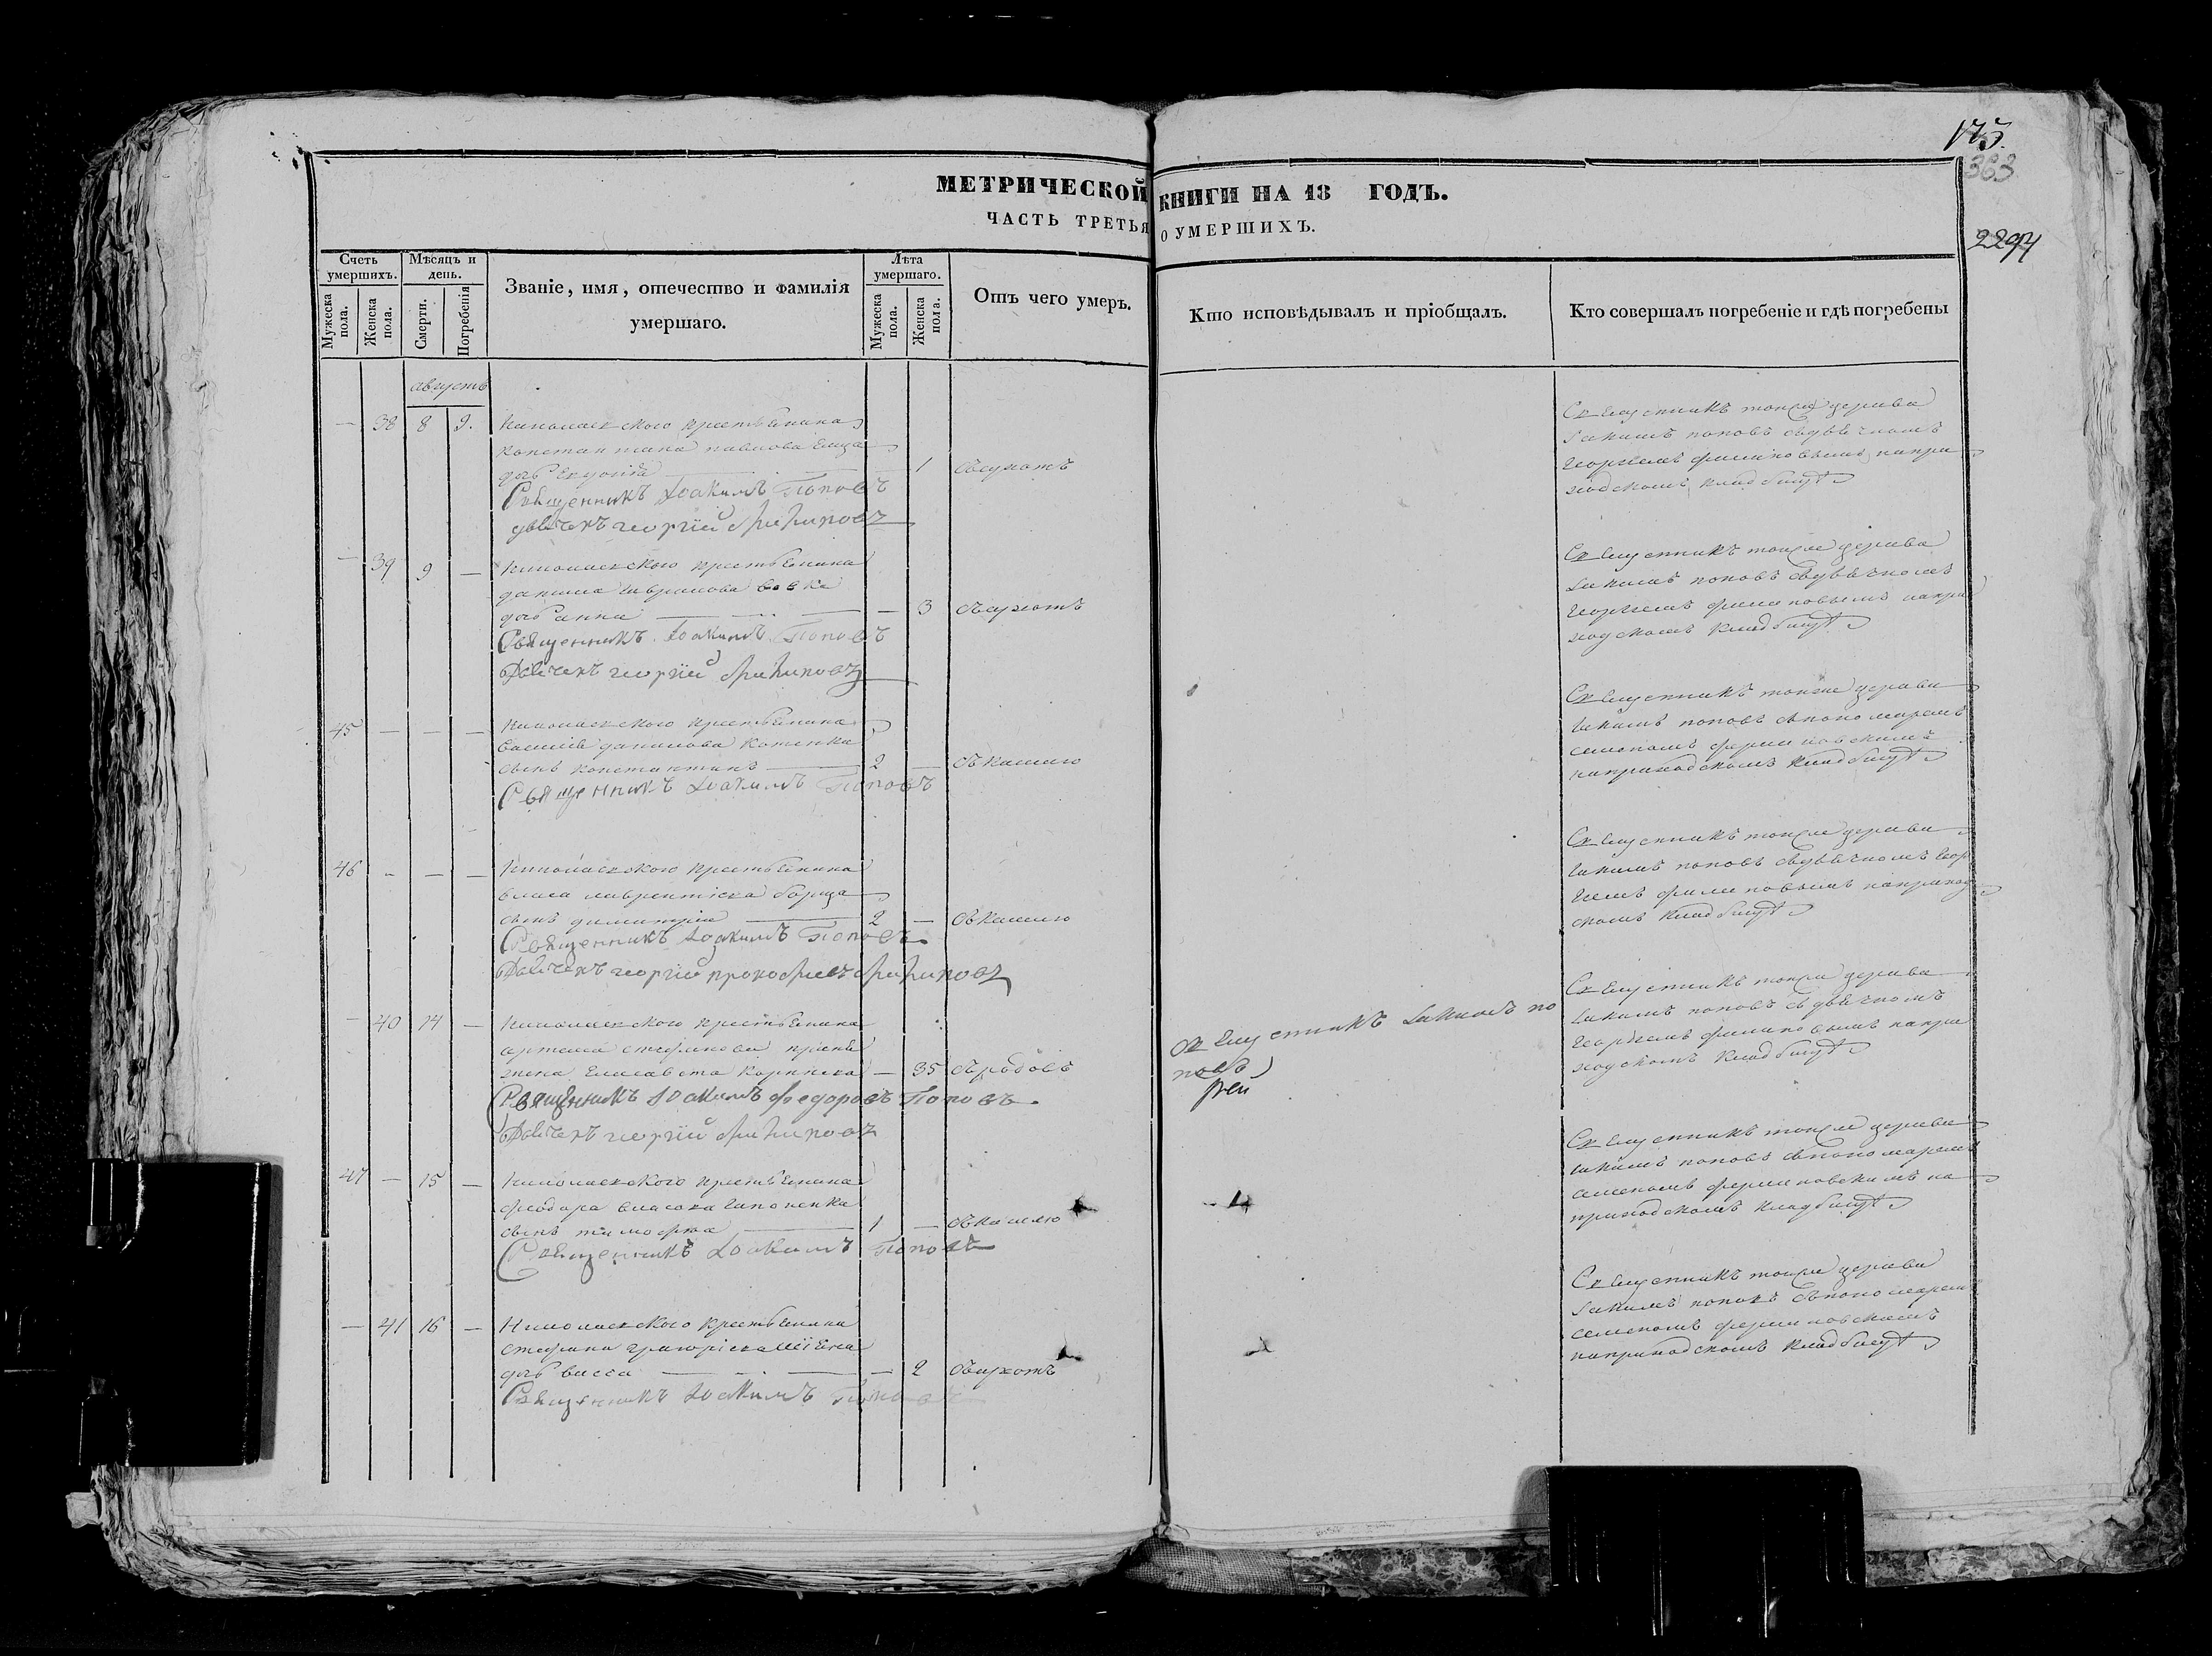 175.
363
2294
МЕТРИЧЕСКОЙ КНИГИ НА 18 ГОДЪ.
ЧАСТЬ ТРЕТЬЯ О УМЕРШИХЪ.
Счетъ умершихъ.
Мужеска пола.
Женска пола.
Мѣсяцъ и день.
Смерти.
Погребенія
Званіе, имя, отечество и фамилія
умершаго.
Лѣта умершаго.
Мужеска пола.
Женска пола.
Отъ чего умеръ.
Кто исповѣдывалъ и пріобщалъ.
Кто совершалъ погребеніе и гдѣ погребены
августъ
— 38 8 9. Николаевского крестьянина
Константина павлова
дочь 1
Священникъ Іоакимъ Поповъ
дьячекъ георгій Филиповъ
Священникъ тойже церкви
Іакимъ поповъ сдьячкомъ
Георгіемъ филиповымъ наприходскомъ кладбищѣ
— 39 9 — Николаевского крестьянина
данила
дочь анна — 3
Священникъ Іоакимъ Поповъ
Дьячекъ георгій Филиповъ
Священникъ тойже церкви
Іакимъ поповъ сдьячкомъ
Георгіемъ филиповымъ наприходскомъ кладбищѣ
45 — — — Николаевского крестьянина
василія данилова Котенка
сынъ константинъ 2 — отъ кашлю
Священникъ Іоакимъ Поповъ
Священникъ тойже церкви
Іакимъ поповъ спономаремъ
семеномъ
наприходскомъ кладбищѣ
46 — — — Николаевского крестьянина
власа лаврентіева
сынъ димитрій 2 — отъ кашлю
Священникъ Іоакимъ Поповъ
Дьячекъ георгій прокофиевъ Филиповъ
Священникъ тойже церкви
Іакимъ поповъ сдьячкомъ Георгіемъ филиповымъ наприходскомъ кладбищѣ
— 40 14 — Николаевского крестьянина
артема
жена Елисавета — 35 отъ родовъ
Священникъ Іоакимъ федоровъ Поповъ
Дьячекъ георгій Филиповъ
Священникъ Іакимъ поповъ
Священникъ тойже церкви
Іакимъ поповъ сдьячкомъ
Георгіемъ филиповымъ наприходскомъ кладбищѣ
47 — 15 — Николаевского крестьянина
феодора власова
сынъ тимофей 1 — отъ кашлю
Священникъ Іоакимъ Поповъ
Священникъ тойже церкви
Іакимъ поповъ спономаремъ
семеномъ на
приходскомъ кладбищѣ
— 41 16 — Николаевского крестьянина
стефана григоріева
дочь васса — 2
Священникъ Іоакимъ Поповъ
Священникъ тойже церкви
Іакимъ поповъ спономаремъ
семеномъ
наприходскомъ кладбищѣ